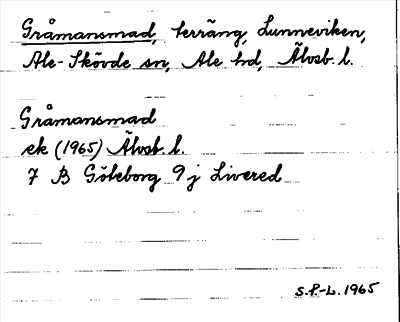 Gråmansmad, terräng, Lunneviken,
Ale-Skövde sn, Ale hd, Älvsb. l.
Gråmansmad
ek (1965) Älvsb. l.
7 B Göteborg 9 j Livered
S.P.-L. 1965